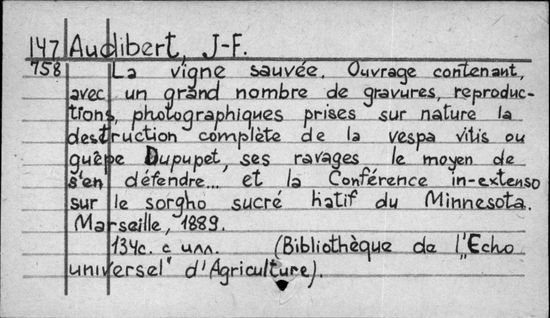 147 Audibert, J-F.
758 La vigne sauvée. Ouvrage contenant,
avec un grand nombre de gravures, reproduc-
tions, photographiques prises sur nature la
destruction complète de la vespa vitis ou
guêpe Dupupet, ses ravages le moyen de
s'en défendre... et la Conférence in-extenso
sur le sorgho sucré hatif du Minnesota.
Marseille, 1889.
134c. с илл. (Bibliothèque de l'„Echo
universel" d'Agriculture).